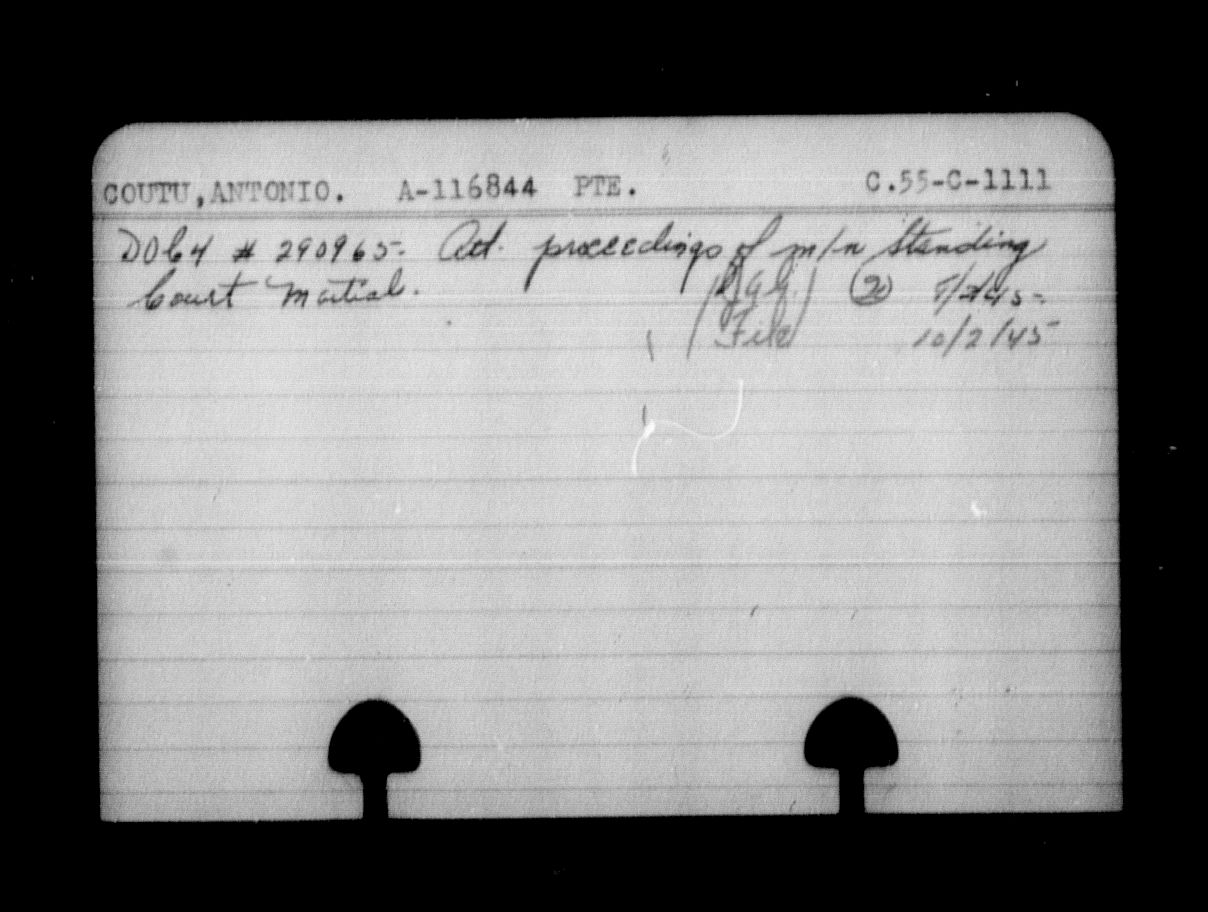 COUTU,ANTONIO. A-116844 PTE. C.55-C-1111
# 290965- proceedings of m/n Standing
Court Martial. (20) /2/45-
File 10/2/45